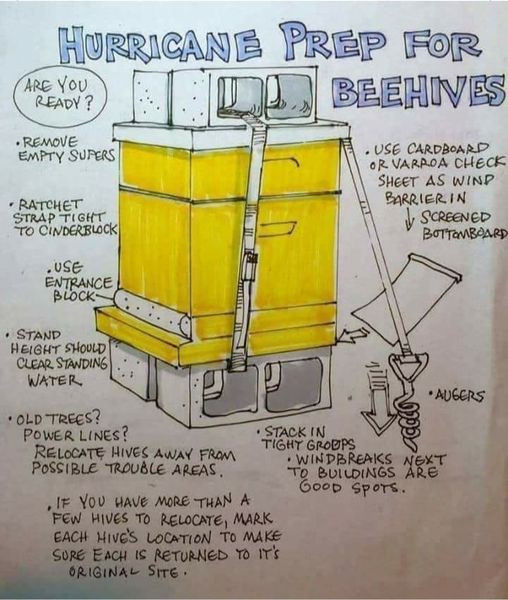 HURRICANE PREP FOR
BEEHIVES
ARE YOU
READY?
• REMOVE
EMPTY SUPERS
• RATCHET
STRAP TIGHT
TO CINDERBLOCK
• USE
ENTRANCE
BLOCK
• STAND
HEIGHT SHOULD
CLEAR STANDING
WATER
• OLD TREES?
POWER LINES?
RELOCATE HIVES AWAY FROM
POSSIBLE TROUBLE AREAS.
• IF YOU HAVE MORE THAN A
FEW HIVES TO RELOCATE, MARK
EACH HIVE'S LOCATION TO MAKE
SURE EACH IS RETURNED TO IT'S
ORIGINAL SITE.
• USE CARDBOARD
OR VARROA CHECK
SHEET AS WIND
BARRIER IN
SCREENED
BOTTOMBOARD
• AUGERS
• STACK IN
TIGHT GROUPS
• WINDBREAKS NEXT
TO BUILDINGS ARE
GOOD SPOTS.